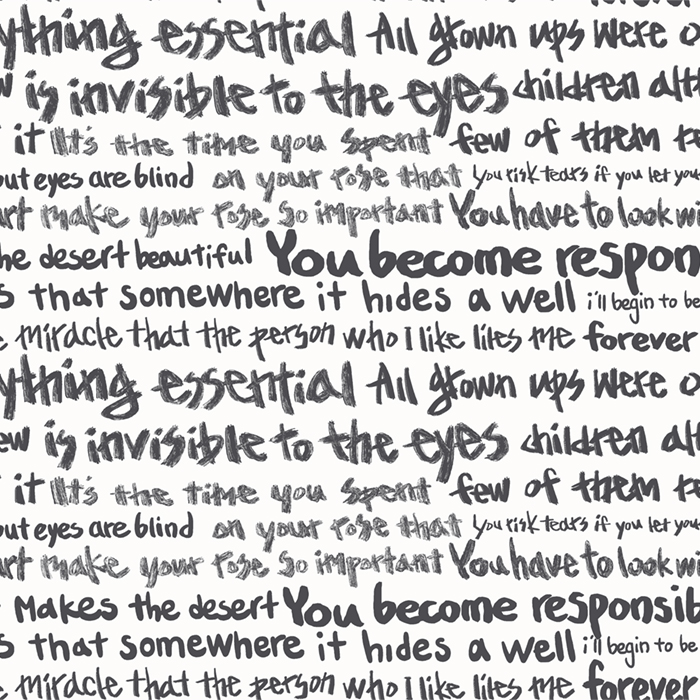 ything essential All grown ups were o
w is invisible to the eyes children alt
it It's the time you spent few of them re
but eyes are blind on your rose that You risk tears if you let you
art make your rose so important You have to look wi
he desert beautiful You become respon
s that somewhere it hides a well i'll begin to be
e miracle that the person who I like likes me forever
ything essential All grown ups were o
ew is invisible to the eyes children alt
it It's the time you spent few of them re
out eyes are blind on your rose that You risk tears if you let you
art make your rose so important You have to look wi
Makes the desert You become responsib
s that somewhere it hides a well i'll begin to be
e miracle that the person who I like likes me forever